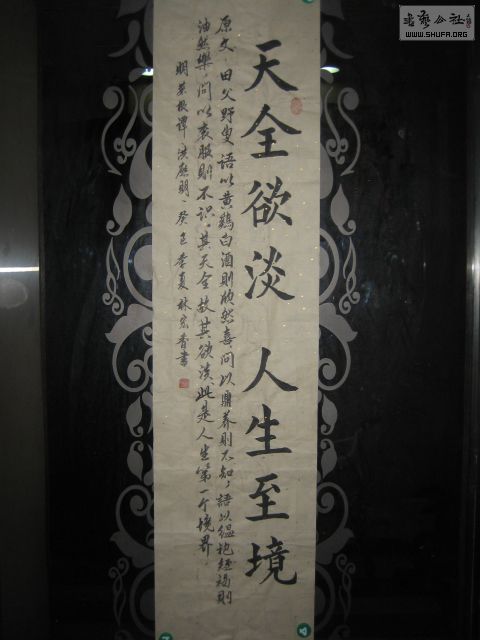 天全欲淡 人生至境
原文、田父野叟语以黄鸡白酒则欣然喜问以鼎养则不知，语以缊袍短褐则
油然乐，问以衮服则不识。其天全故其欲淡此是人生第一个境界。
明 菜根谭 洪应明、癸巳季夏 林宏香书
书艺公社
WWW.SHUFA.ORG